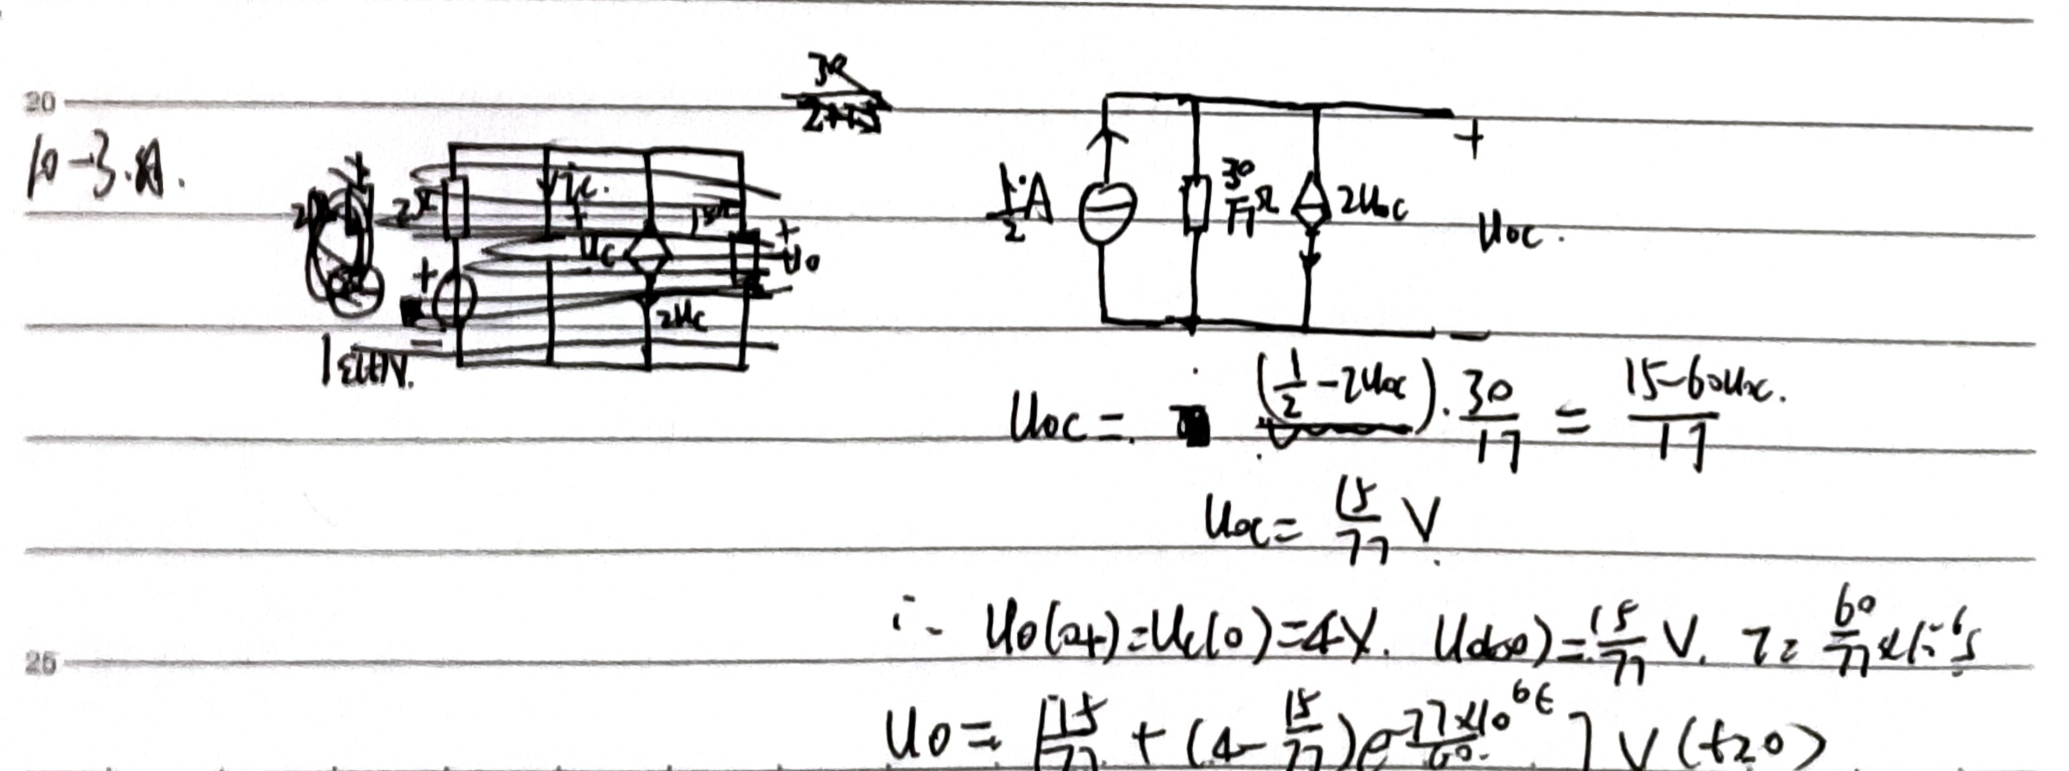 20
10-3.
2Ω
u_c
+
15Ω
u_0
2u_c
1ε(t)V.
1/2 A
30/17 Ω
2u_oc
+
u_oc.
-
u_oc = (1/2 - 2u_oc) · 30/17 = (15-60u_oc)/17
u_oc = 15/77 V.
∴ u_0(0+) = u_c(0) = 4V. u_0(∞) = 15/77 V. τ = 60/77 × 10^-6 s
25
u_0 = [15/77 + (4 - 15/77)e^(-77×10^6 t/60)] V (t≥0)